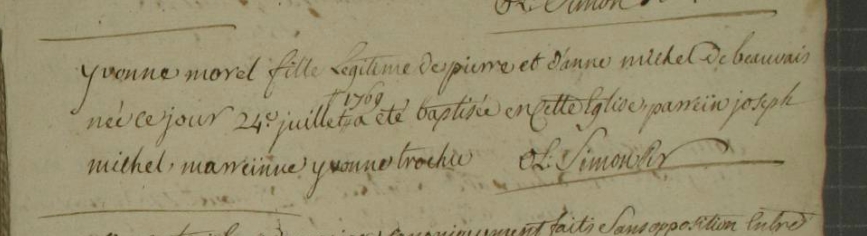 OL. Simon
yvonne morel fille Legitime de pierre et d'anne michel de beauvais
1769
née ce jour 24e juillet a été baptisée en Cette Eglise, parrein joseph
michel, marreinne yvonne trochu OL. Simon Rr
faits Sans opposition Entre